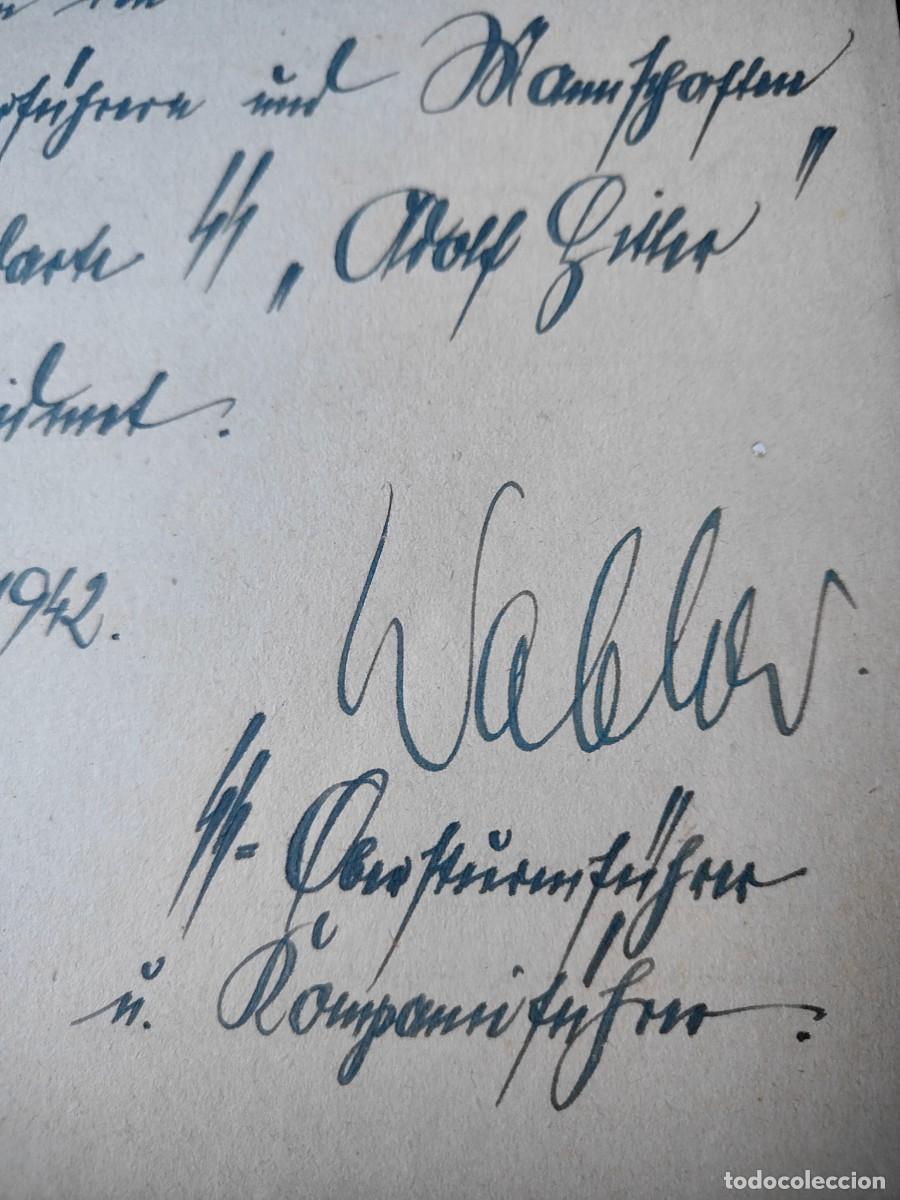 führern und Mannschaften
darte SS „Adolf Hitler"
idmet.
1942.
SS-Obersturmführer
u. Kompanieführer.
todocoleccion